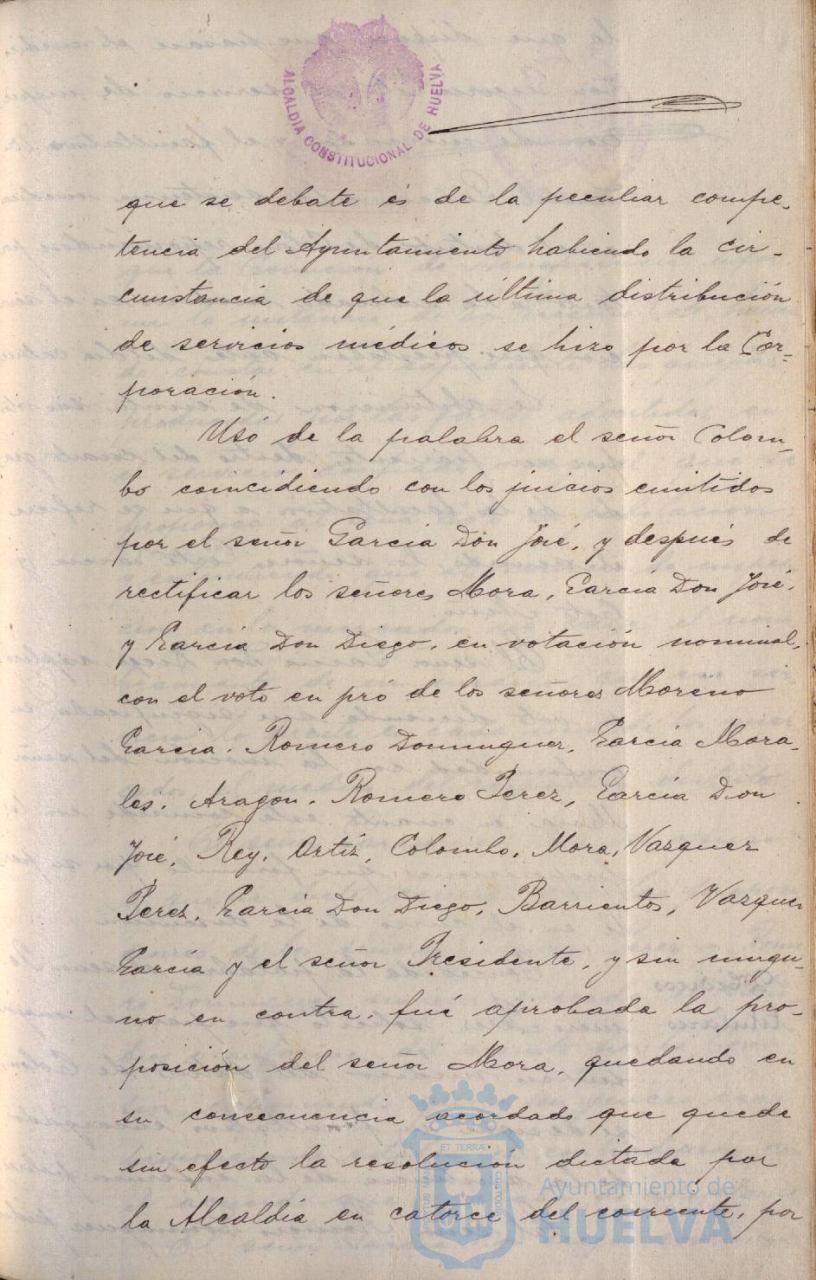 ALCALDIA CONSTITUCIONAL DE HUELVA
que se debate és de la peculiar compe-
tencia del Ayuntamiento habiendo la cir-
cunstancia de que la última distribución
de servicios médicos se hizo por la Cor-
poración.
Usó de la palabra el señor Colom-
bo coincidiendo con los juicios emitidos
por el señor García Don José, y después de
rectificar los señores Mora, García Don José,
y García Don Diego, en votación nominal,
con el voto en pró de los señores Moreno
García, Romero Dominguez, García Mora-
les, Aragon, Romero Perez, García Don
José, Rey, Ortíz, Colombo, Mora, Vazquez
Perez, García Don Diego, Barrientos, Vazquez
García y el señor Presidente, y sin ningu-
no en contra, fué aprobada la pro-
posición del señor Mora, quedando en
su consecuencia acordado que quede
sin efecto la resolución dictada por
la Alcaldía en catorce del corriente, por
ET TERRAE
Ayuntamiento de
HUELVA